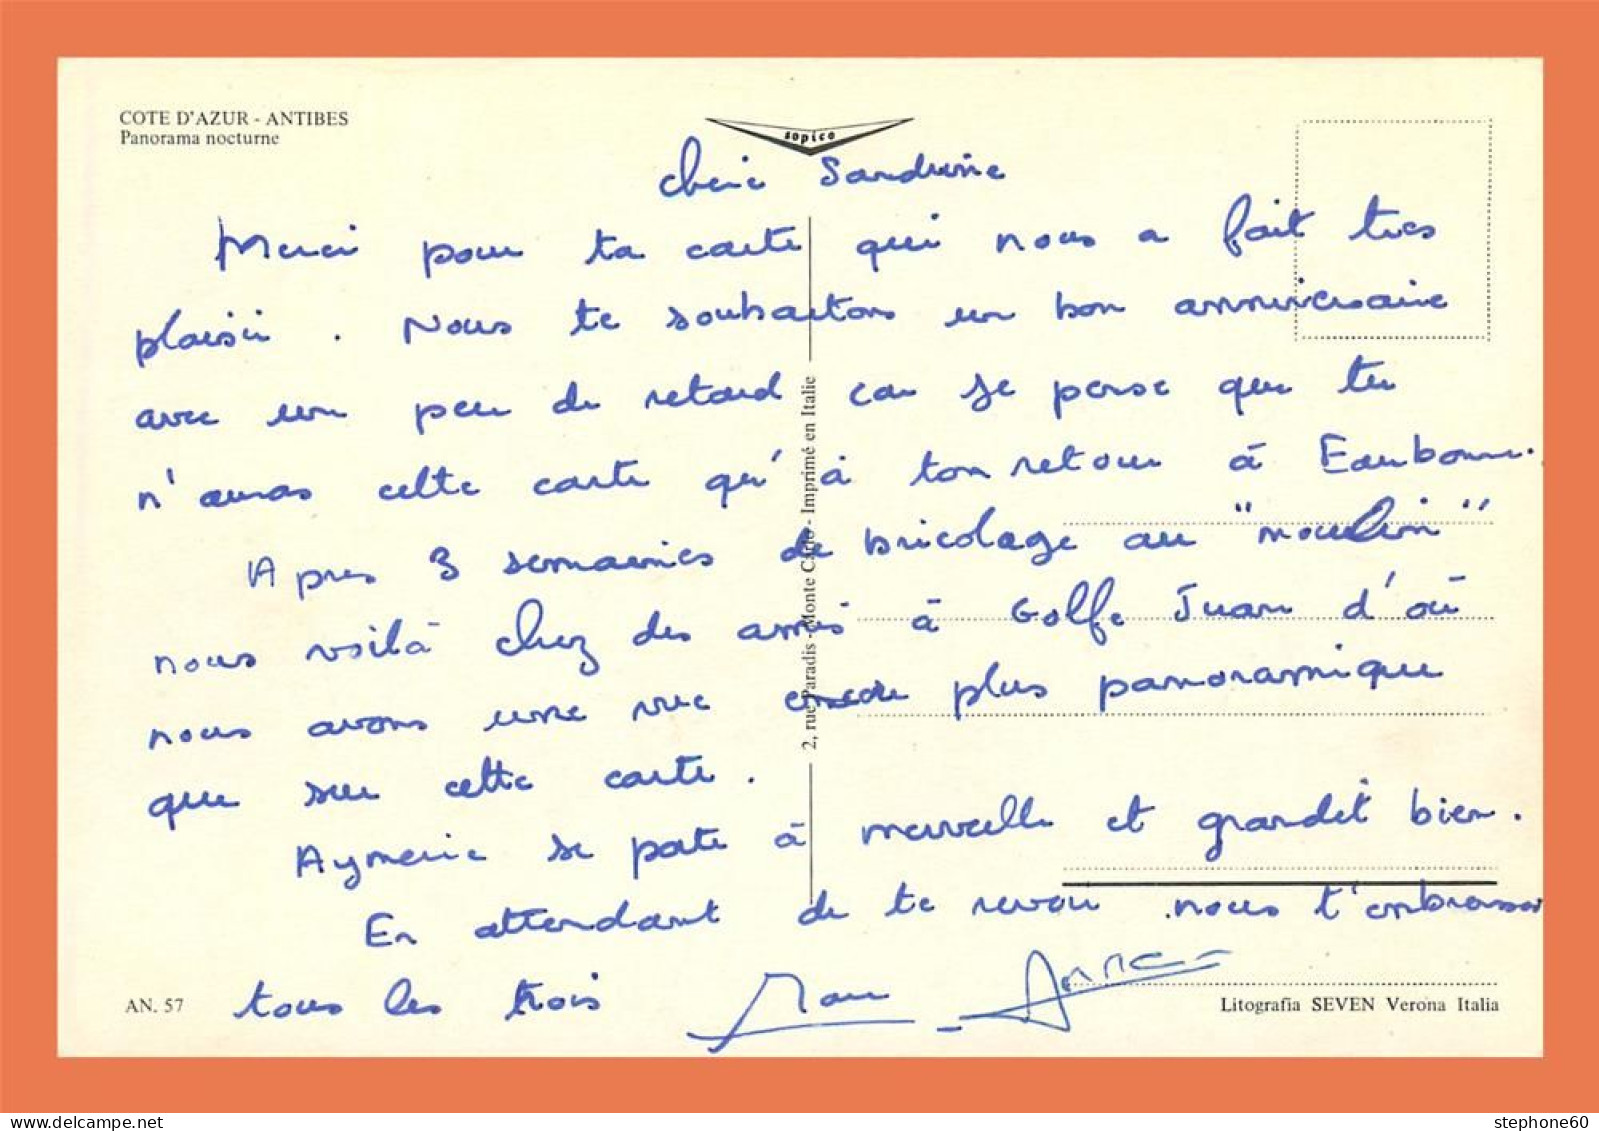 COTE D'AZUR - ANTIBES
Panorama nocturne
sopico
Chérie Sandrine
Merci pour ta carte qui nous a fait très
plaisir. Nous te souhaitons un bon anniversaire
avec un peu de retard car je pense que tu
n'auras cette carte qu'à ton retour à Eaubonne.
Après 3 semaines de bricolage au "moulin"
nous voilà chez des amis à Golfe Juan d'où
nous avons une vue encore plus panoramique
que sur cette carte.
Aymeric se porte à merveille et grandit bien.
En attendant de te revoir nous t'embrassons
tous les trois Anne
2, rue Paradis - Monte Carlo - Imprimé en Italie
AN. 57
Litografia SEVEN Verona Italia
stephone60